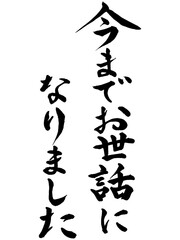 今までお世話に
なりました